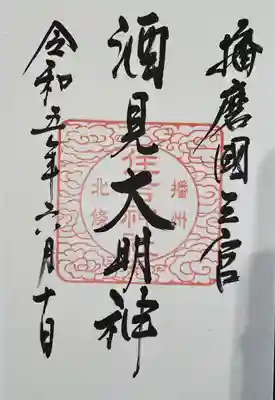 播磨國三宮
酒見大明神
令和五年六月十日
住吉神社
播州
北條